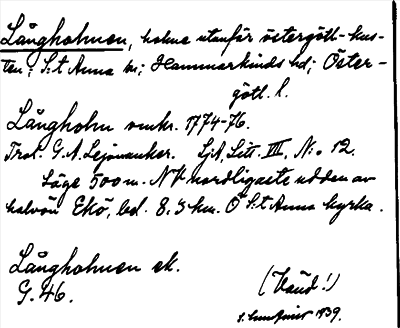 Långholmen, holme utanför östergötl-kus-
ten; S:t Anna sn; Hammarkinds hd; Öster-
götl. l.
Långholm omkr. 1774-76.
Trol. G.A. Lejonanker. LjA, Litt. VII, N:o 12.
Läge 500 m. NV nordligaste udden av
halvön Ekö, bel. 8.5 km. Ö S:t Anna kyrka.
Långholmen ek.
G.46.
(Vänd!)
1939.